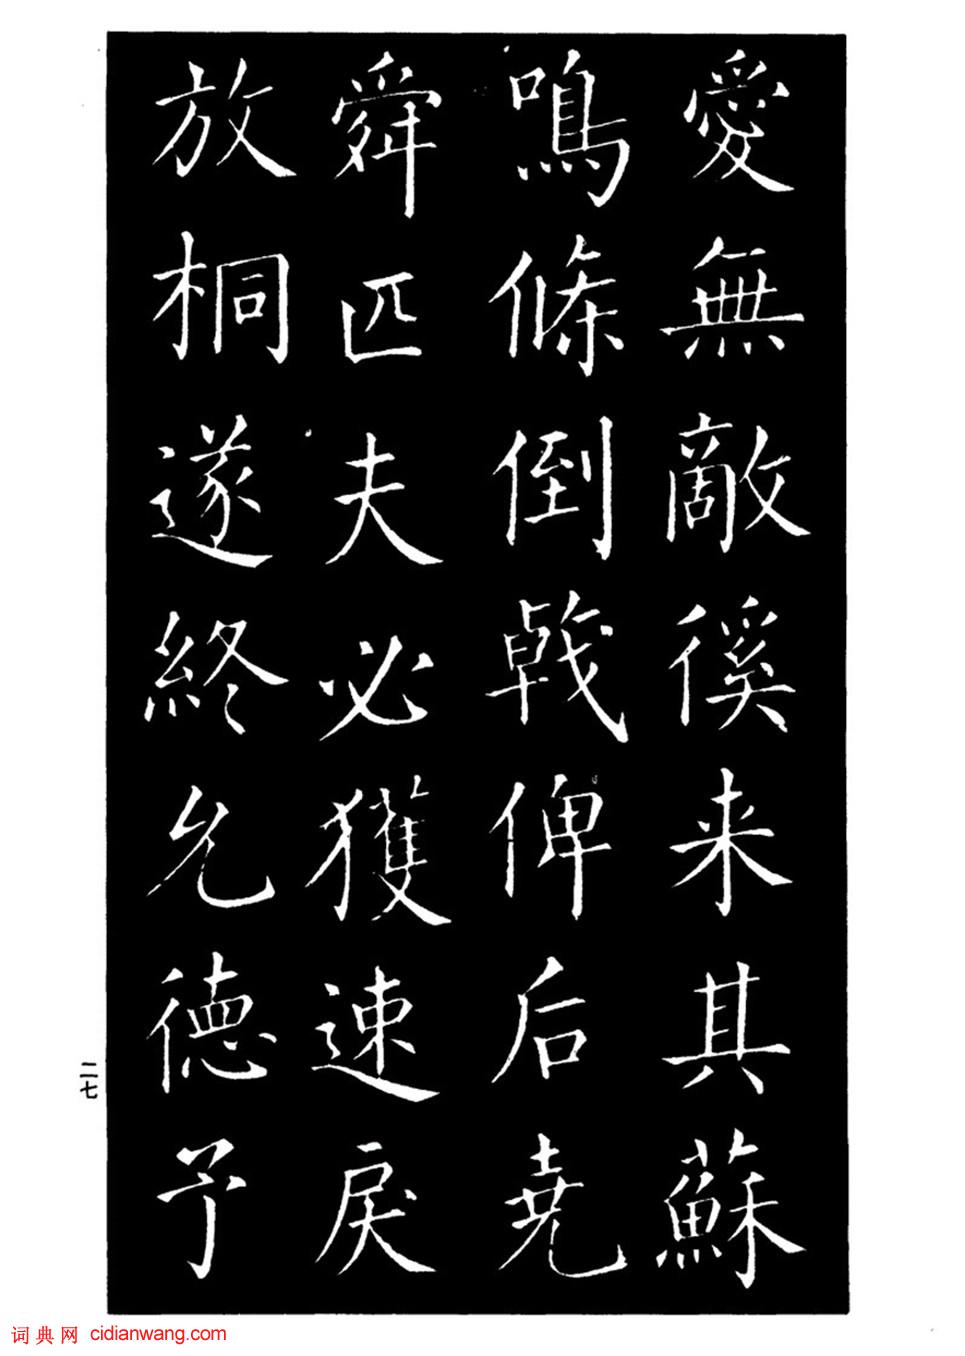 愛無敵徯来其蘇
鳴條倒戟俾后堯
舜匹夫必獲速戾
放桐遂終允德予
二七
词典网 cidianwang.com